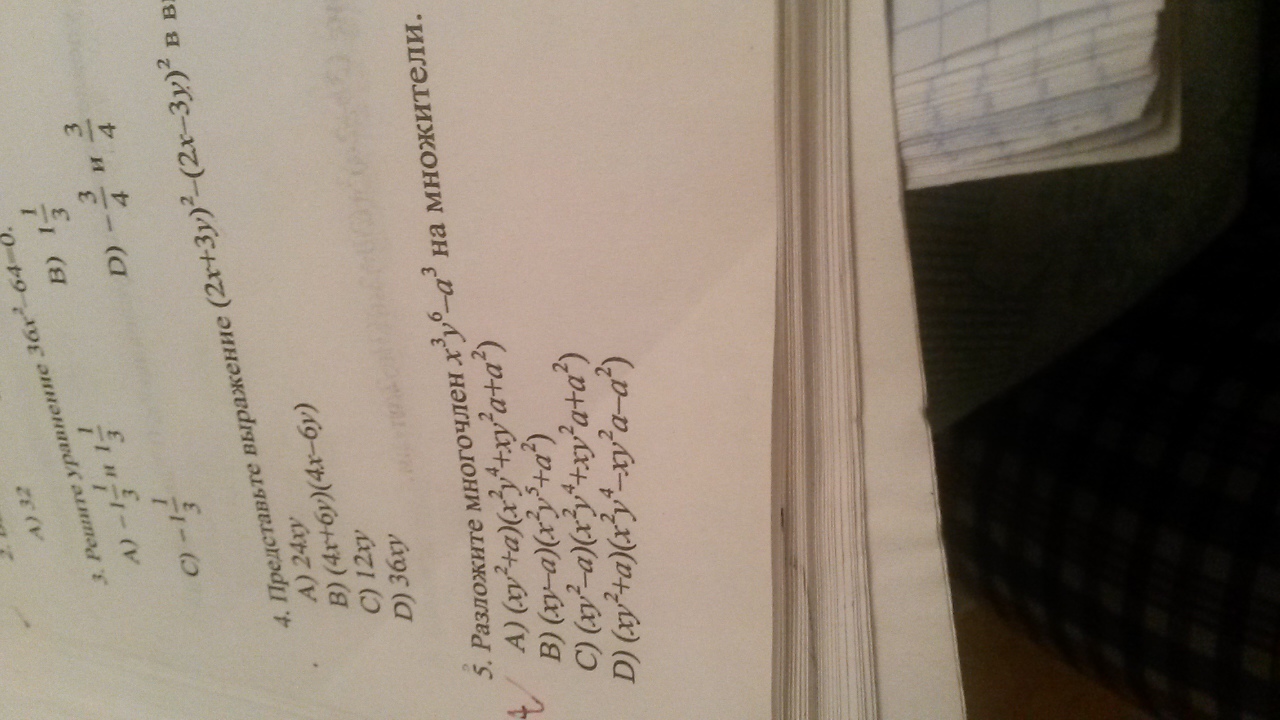 2.
A) 32
3. Решите уравнение 36x²–64=0.
A) –1 1/3 и 1 1/3 B) 1 1/3
C) –1 1/3 D) – 3/4 и 3/4
4. Представьте выражение (2x+3y)²–(2x–3y)² в
A) 24xy
B) (4x+6y)(4x–6y)
C) 12xy
D) 36xy
5. Разложите многочлен x³y⁶–a³ на множители.
A) (xy²+a)(x²y⁴+xy²a+a²)
B) (xy–a)(x²y⁵+a²)
C) (xy²–a)(x²y⁴+xy²a+a²)
D) (xy²+a)(x²y⁴–xy²a–a²)